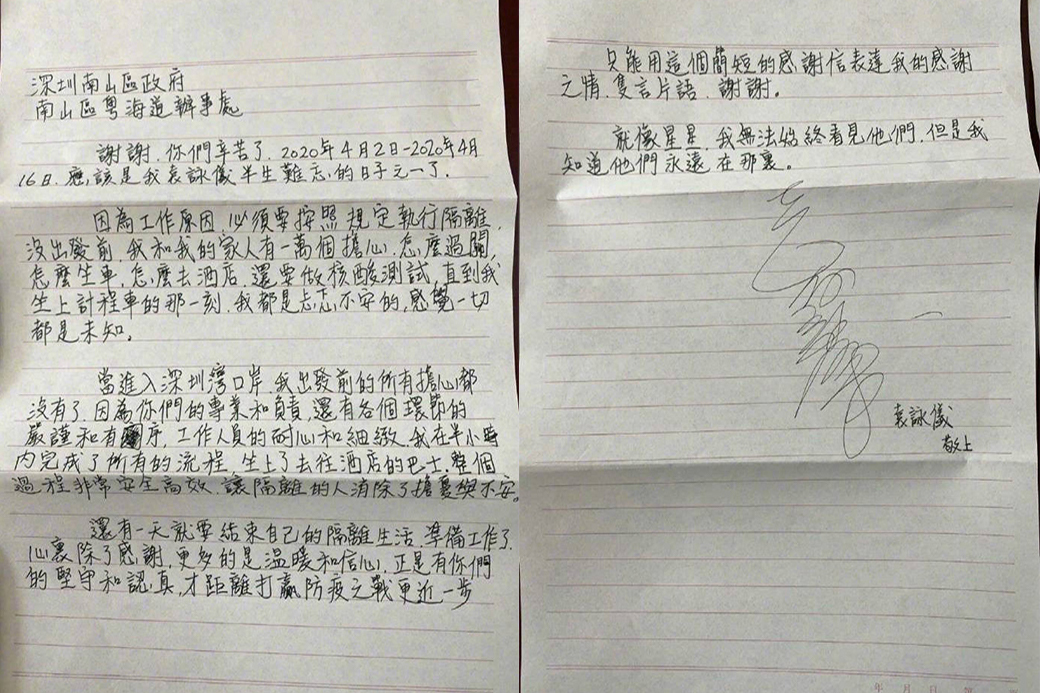 深圳南山區政府
南山區粵海道辦事處
謝謝，你們辛苦了，2020年4月2日-2020年4月
16日，應該是我袁詠儀半生難忘的日子元一了，
因為工作原因，必須要按照規定執行隔離，
沒出發前，我和我的家人有一萬個擔心，怎麼過關，
怎麼生車，怎麼去酒店，還要做核酸測試，直到我
生上計程車的那一刻，我都是忐忑不安的，感覺一切
都是未知。
當進入深圳灣口岸，我出發前的所有擔心都
沒有了，因為你們的專業和負責，還有各個環節的
嚴謹和有序，工作人員的耐心和細緻，我在半小時
內完成了所有的流程，生上了去往酒店的巴士，整個
過程非常安全高效，讓隔離的人消除了擔憂與不安。
還有一天就要結束自己的隔離生活，準備工作了，
心裏除了感謝，更多的是溫暖和信心，正是有你們
的堅守和認真，才距離打贏防疫之戰更近一步
只能用這個簡短的感謝信表達我的感謝
之情，隻言片語，謝謝。
就像星星，我無法始終看見他們，但是我
知道他們永遠在那裏。
袁詠儀
敬上
年 月 日